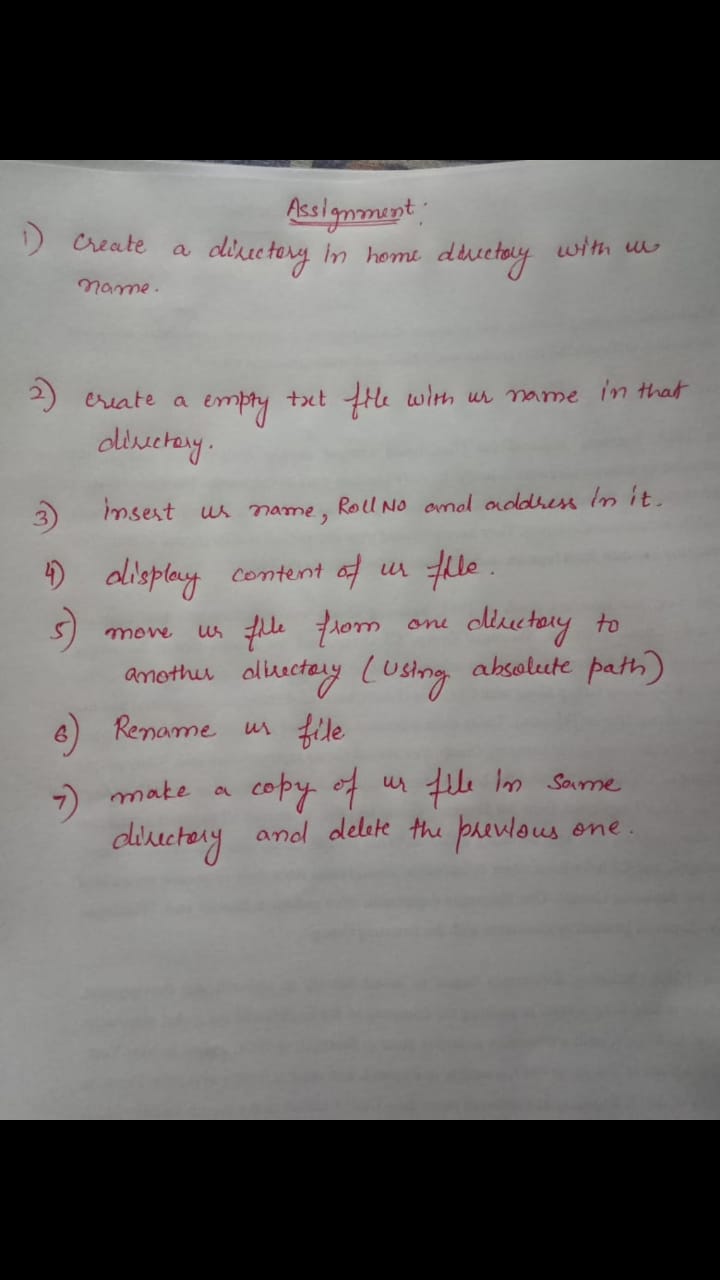 Assignment:
1) Create a directory in home directory with ur
name.
2) create a empty txt file with ur name in that
directory.
3) insert ur name, Roll No and address in it.
4) display content of ur file.
5) move ur file from one directory to
another directory (Using absolute path)
6) Rename ur file
7) make a copy of ur file in same
directory and delete the previous one.